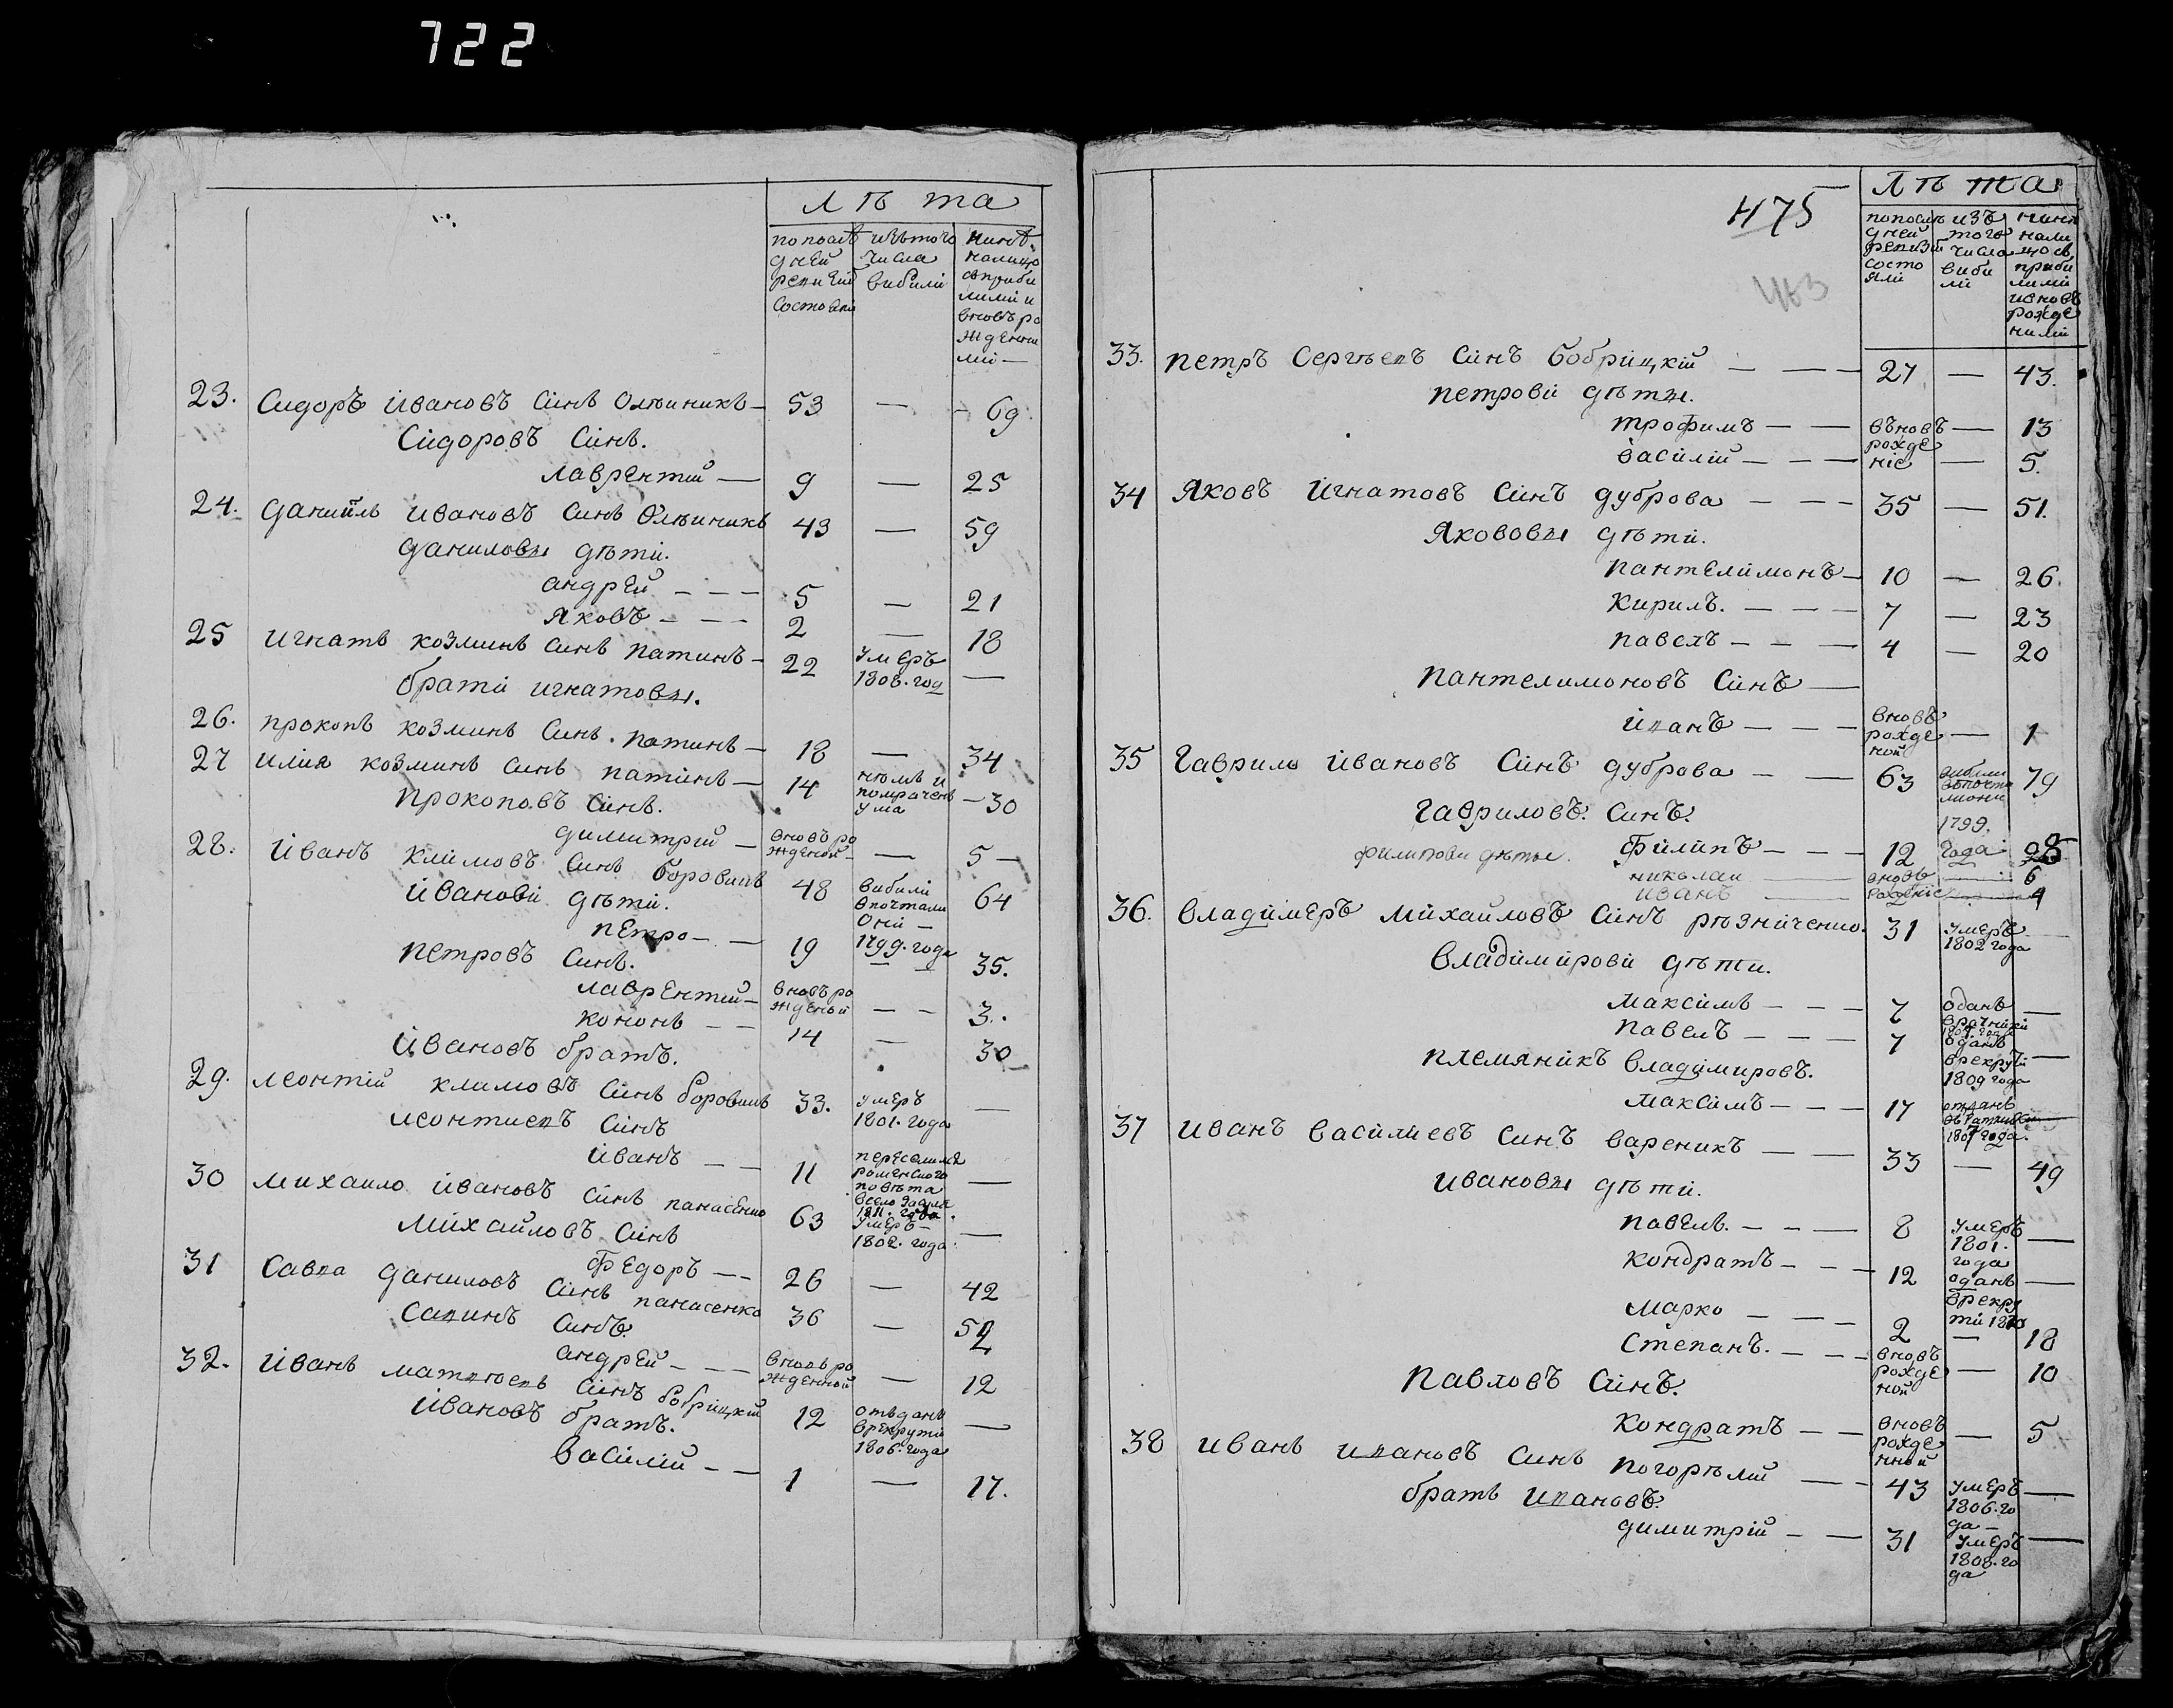 722
Лѣта
попослѣ изътого нинѣ
дней числа налицо
ревизій вибили съприби
состояли лимй и
вновъро
жденни
мй —
23. Сидоръ Ивановъ синъ Олѣйникъ — 53 — 69
Сидоровъ синъ.
лаврентий — 9 — 25
24. Данийлъ Ивановъ синъ Олѣйникъ 43 — 59
даниловы дѣти.
андрей — — — 5 — 21
яковъ — — — 2 — 18
25 игнатъ козминъ синъ патинъ — 22 умеръ 1808. год —
братй игнатовы.
26. прокопъ козминъ синъ. патинъ — 18 — 34
27 илия козминъ синъ патинъ — 14 нѣмъ и помраченъ ума — 30
прокоповъ синъ.
димитрий — вновъро жденой — — 5 —
28. Иванъ климовъ синъ боровикъ 48 вибили 64
Иванови дѣти. 
петро — — 19 1799. года 35.
петровъ синъ.
лаврентий — вновъро жденой — — 3.
кононъ — — 14 — 30
Ивановъ братъ.
29. леонтий климовъ синъ боровикъ 33. умеръ 1801. года —
леонтиевъ синъ
иванъ — — 11 роменского повѣта 1811. года —
30 михаило ивановъ синъ панасенко 63 умеръ — 1802. года —
Михайловъ синъ
Федоръ — — 26 — 42
31 Савва даниловъ синъ панасенко 36 — 52
Савинъ синъ.
андрей — — — вновъро жденной — 12
32. Иванъ матвѣевъ синъ бобрицкий 12 отъданъ врекрути 1806. года —
Ивановъ братъ.
василий — — 1 — 17.
475
463
Лѣта
попослѣ изъ нинѣ
дней того нали
ревизй числа цо съ
состо виби приби
яли ли лими
ивновъ
рожде
ними
33. петръ Сергѣевъ синъ бобрицкий — — — 27 — 43.
петрови дѣти.
трофимъ — — въновъ — 13
василий — — — рожде ние — 5.
34 яковъ Игнатовъ синъ дуброва — — — 35 — 51.
Якововы дѣти.
пантелимонъ — 10 — 26.
кирилъ. — — — 7 — 23
павелъ — — — 4 — 20
пантелимоновъ синъ —
иванъ — — — вновъ рожде ной — 1
35 Гаврило Ивановъ синъ дуброва — — 63 вибили 79
Гавриловъ. синъ. 1799.
филипови дѣтые. Филипъ — — — 12 года 28
николаи — вновъ — 6
иванъ — рождение — 4
36. Владимеръ Михайловъ синъ рѣзниченко. 31 умеръ 1802 года
Владимирови дѣти.
максимъ — — — 7 оданъ —
павелъ — — — 7 оданъ врекрути 1809 года —
племяникъ Владимировъ.
максимъ — — — 17 отданъ 1807 года.
37 иванъ василиевъ синъ вареникъ — — 33 — 49
ивановы дѣти.
павелъ. — — — 8 умеръ 1801. года —
кондратъ — — — 12 оданъ врекру ти 1810 —
марко — — — 2 — 18
степанъ. — — — вновъ рожде ной — 10
Павловъ синъ.
кондратъ — — вновъ рожде нной — 5
38 иванъ ивановъ синъ погорѣлий — — 43 умеръ 1806. го да — —
братъ ивановъ.
димитрий — — 31 умеръ 1808. го да —